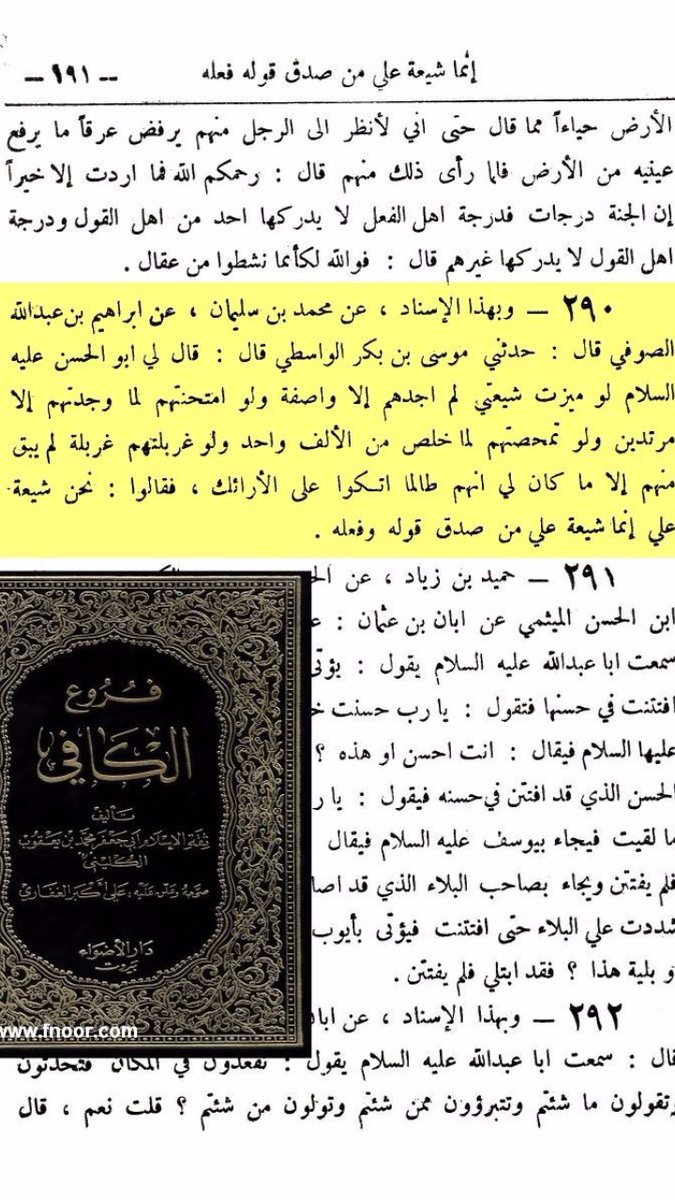 إنما شيعة علي من صدق قوله فعله
-- ١٩١ --
الأرض حياءاً مما قال حتى اني لأنظر الى الرجل منهم يرفض عرقاً ما يرفع
عينيه من الأرض فلما رأى ذلك منهم قال : رحمكم الله فما اردت إلا خيراً
إن الجنة درجات فدرجة اهل الفعل لا يدركها احد من اهل القول ودرجة
اهل القول لا يدركها غيرهم قال : فوالله لكأنما نشطوا من عقال .
٢٩٠ — وبهذا الإسناد ، عن محمد بن سليمان ، عن ابراهيم بن عبدالله
الصوفي قال : حدثني موسى بن بكر الواسطي قال : قال لي ابو الحسن عليه
السلام لو ميزت شيعتي لم اجدهم إلا واصفة ولو امتحنتهم لما وجدتهم إلا
مرتدين ولو تمحصتهم لما خلص من الألف واحد ولو غربلتهم غربلة لم يبق
منهم إلا ما كان لي انهم طالما اتكوا على الأرائك ، فقالوا : نحن شيعة
علي إنما شيعة علي من صدق قوله وفعله .
٢٩١ — حميد بن زياد ، عن
ابن الحسن الميثمي عن ابان بن عثمان :
سمعت ابا عبدالله عليه السلام يقول :
افتتنت في حسنها فتقول : يا رب حسنت
عليها السلام فيقال : انت احسن او هذه ؟
الحسن الذي قد افتتن في حسنه فيقول : يا
ما لقيت فيجاء بيوسف عليه السلام فيقال
فلم يفتتن ويجاء بصاحب البلاء الذي قد
شددت علي البلاء حتى افتتنت فيؤتى بأيوب
او بلية هذا ؟ فقد ابتلي فلم يفتتن .
٢٩٢ — وبهذا الإسناد ، عن ابان
قال : سمعت ابا عبدالله عليه السلام يقول : تقعدون في المكان فتحدثون
وتقولون ما شئتم وتتبرؤون ممن شئتم وتولون من شئتم ؟ قلت نعم ، قال
فروع
الكافي
تأليف
ثقة الإسلام أبي جعفر محمد بن يعقوب
الكليني
صححه وعلق عليه : علي أكبر الغفاري
دار الأضواء
بيروت
www.fnoor.com